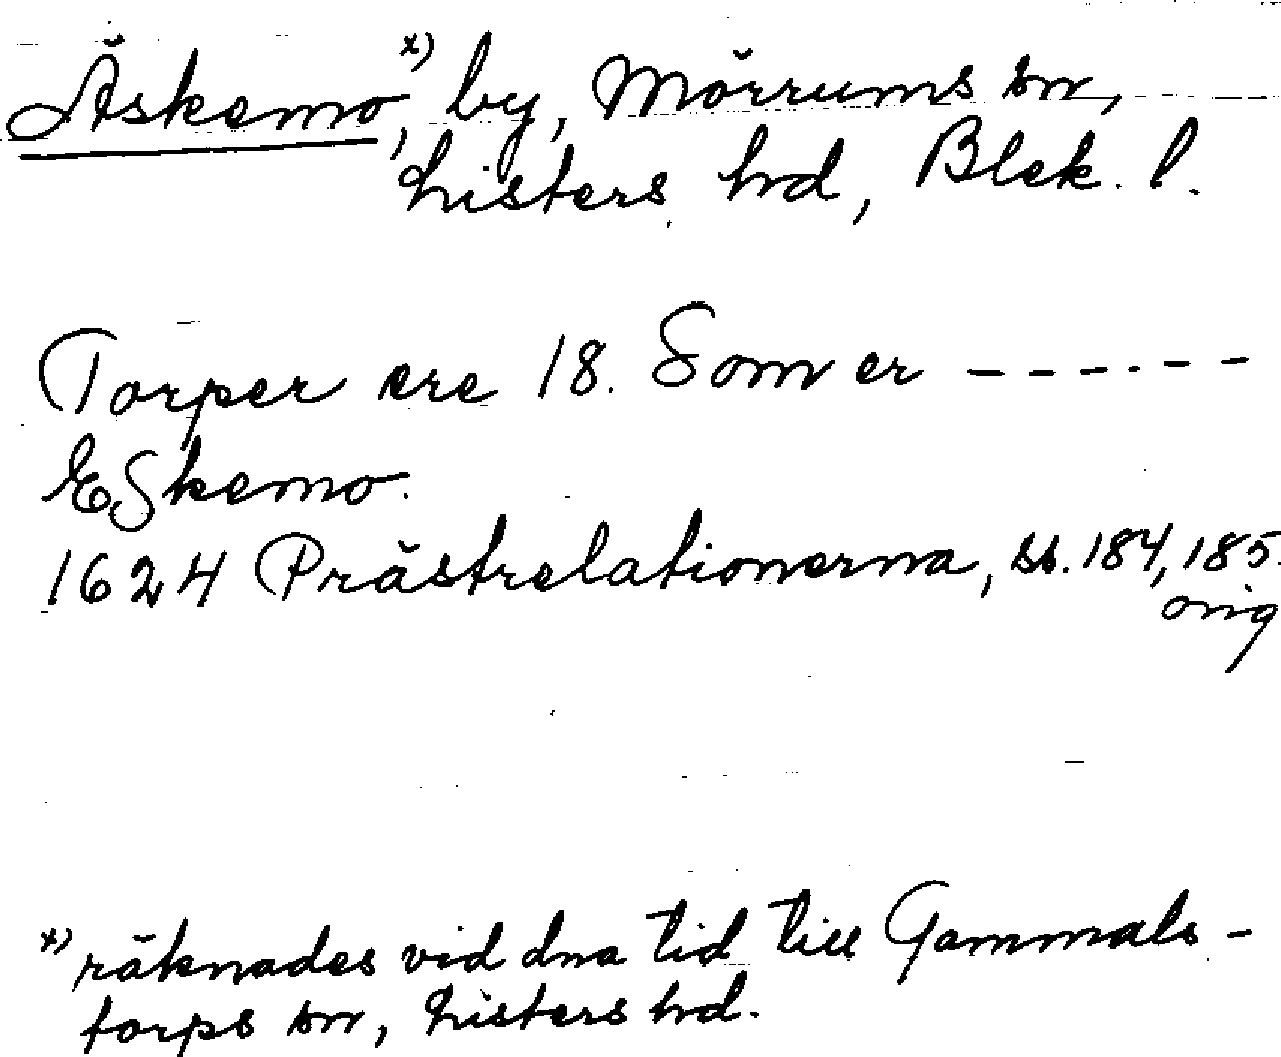 Äskemo, x) by, Mörrums sn,
Listers hd, Blek. l.
Torper ere 18. Som er - - - - - -
ESkemo.
1624 Prästrelationerna, ss. 184, 185.
orig
x) räknades vid dna tid till Gammals-
torps sn, Listers hd.